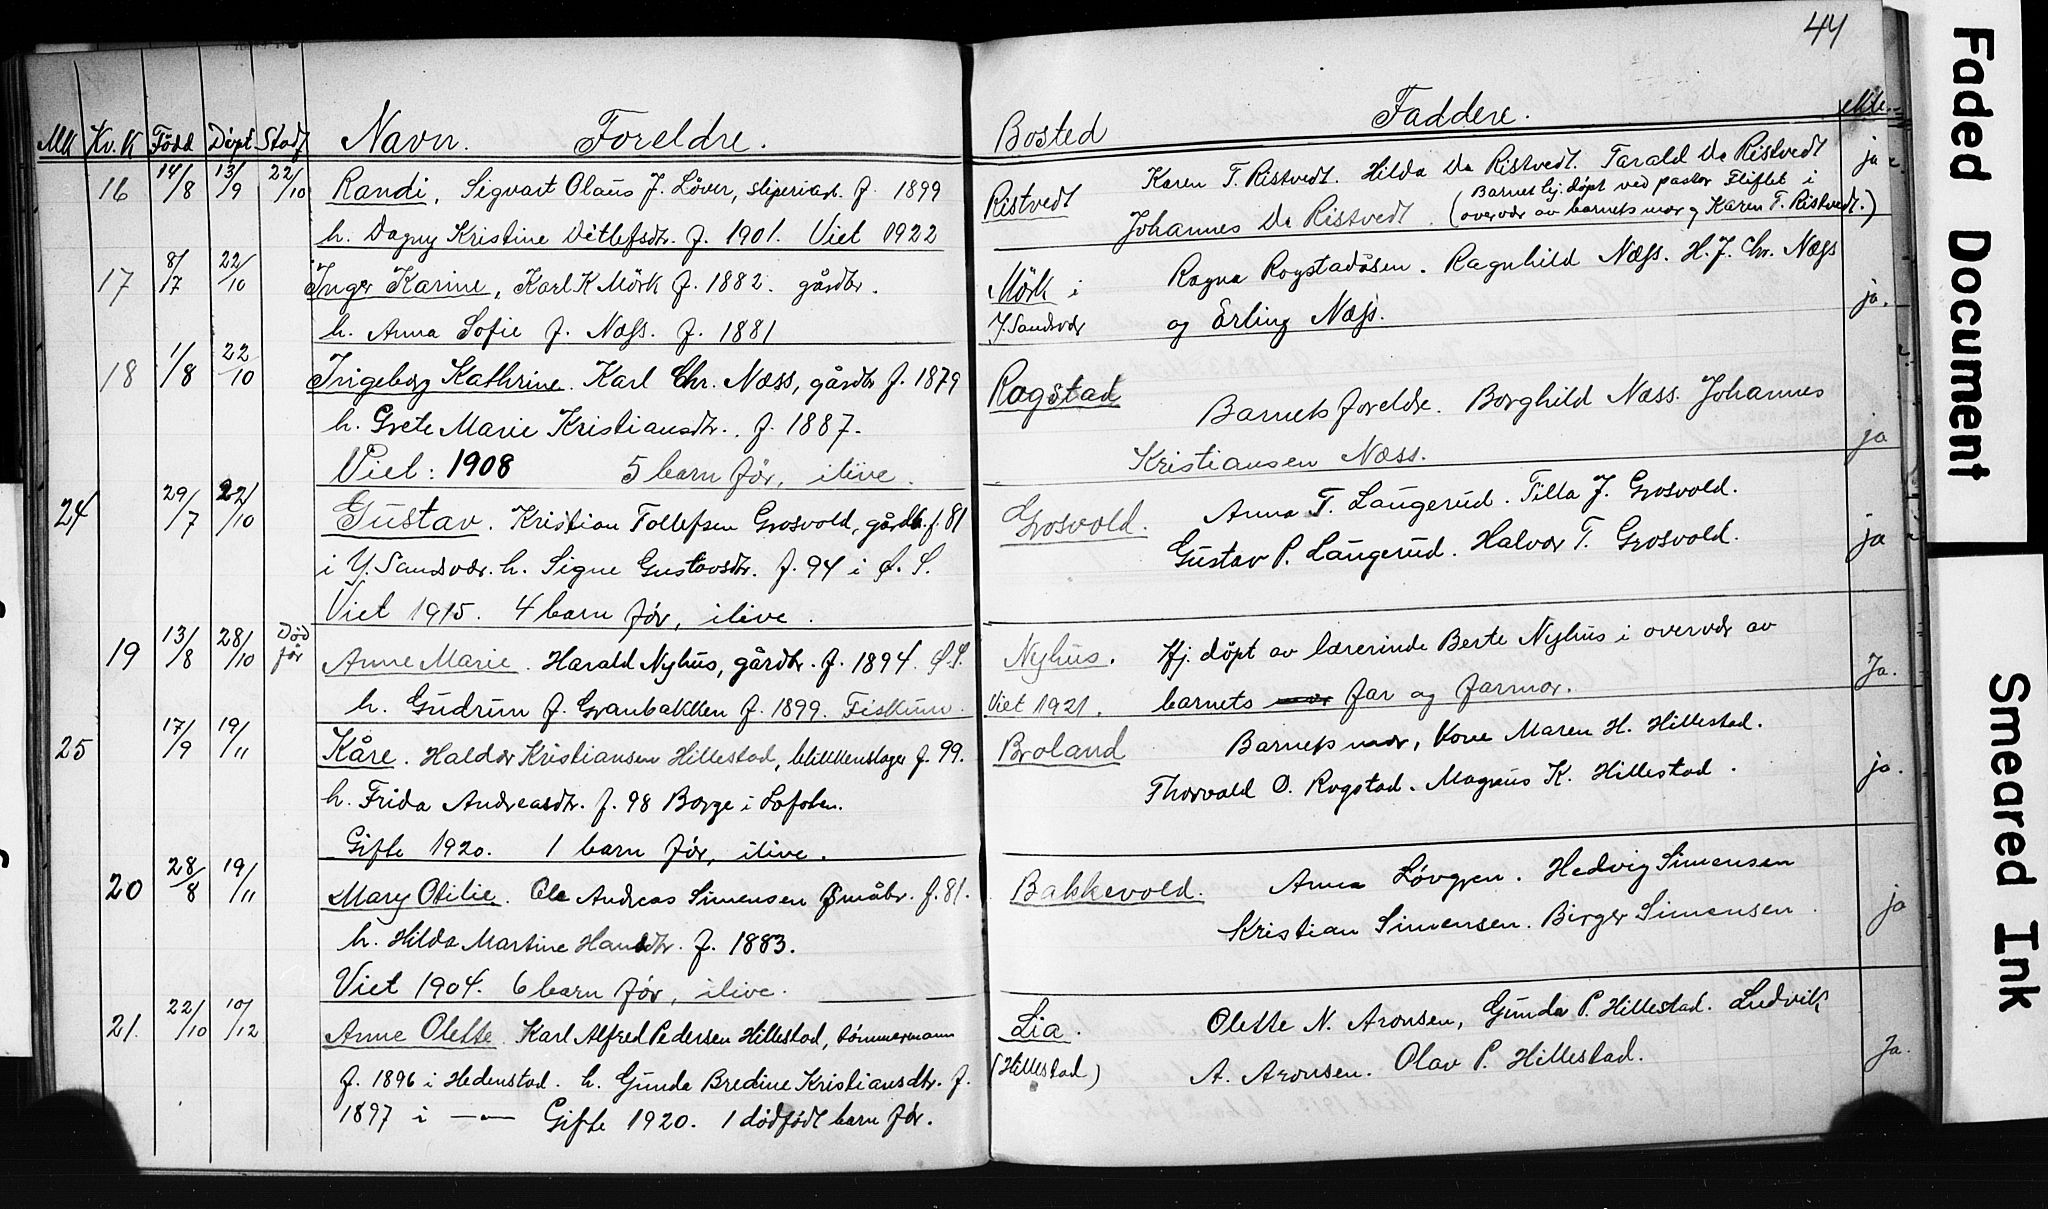 44
Mk Kv.K Född Döpt Stadf Navn. Foreldre. Bosted Faddere. ekte
16 14/8 13/9 22/10 Randi, Sigvart Olaus J. Löver, sliperiarb. f. 1899
h. Dagny Kristine Ditlefsdtr. f. 1901. Viet 1922
Ristvedt
Karen T. Ristvedt. Hilda Ristvedt. Tarald Ristvedt
Johannes Ristvedt. (Barnet hj. døpt ved pastor Fliflet i
overvær av barnets mor og Karen T. Ristvedt.)
ja
17 8/7 22/10 Inger Karine, Karl K Mörk f. 1882. gårdbr.
h. Anna Sofie f. Næss. f. 1881
Mörk i
Y. Sandsvær
Ragna Rogstadåsen. Ragnhild Næss. H. J. Chr. Næss
og Erling Næss.
ja.
18 1/8 22/10 Ingeborg Kathrine. Karl Chr. Næss, gårdbr f. 1879
h. Grete Marie Kristiansdtr. f. 1887.
Viet: 1908 5 barn før, ilive.
Rogstad
Barnets foreldre. Borghild Næss. Johannes
Kristiansen Næss.
ja
24 29/7 22/10 Gustav. Kristian Tollefsen Grosvold, gårdb. f. 81
i Y. Sandsvær. h. Signe Gustavsdtr. f. 94 i Ø. S.
Viet 1915. 4 barn før, ilive.
Grosvold.
Anna T. Laugerud. Tilla J. Grosvold.
Gustav P. Laugerud. Halvor T. Grosvold.
ja
19 13/8 28/10 Död før Anne Marie. Harald Nyhus, gårdbr. f. 1894. Ø. S.
h. Gudrun f. Granbakken f. 1899. Fiskum.
Nyhus.
Viet 1921.
Hj. döpt av lærerinde Berte Nyhus i overvær av
barnets mor far og farmor.
Ja.
25 17/9 19/11 Kåre. Haldor Kristiansen Hillestad, blikkenslager f. 99.
h. Frida Andreasdtr. f. 98 Borge i Lofoten.
Gifte 1920. 1 barn før, ilive.
Broland
Barnets mor, Kone Maren H. Hillestad.
Thorvald O. Rogstad. Magnus K. Hillestad.
ja.
20 28/8 19/11 Mary Otilie. Ole Andreas Simensen småbr. f. 81.
h. Hilda Martine Hansdtr. f. 1883.
Viet 1904. 6 barn før, ilive.
Bakkevold.
Anna Lövgren. Hedvig Simensen
Kristian Simensen. Birger Simensen.
ja
21. 22/10 10/12 Anne Olette. Karl Alfred Pedersen Hillestad, tömmermann
f. 1896 i Hedenstad. h. Gunda Bredine Kristiansdtr. f.
1897 i —"— Gifte 1920. 1 dödfödt barn før.
Lia.
(Hillestad)
Olette N. Aronsen, Gunda P. Hillestad. Ludvik
A. Aronsen. Olav P. Hillestad.
Ja.
Faded Document
Smeared Ink